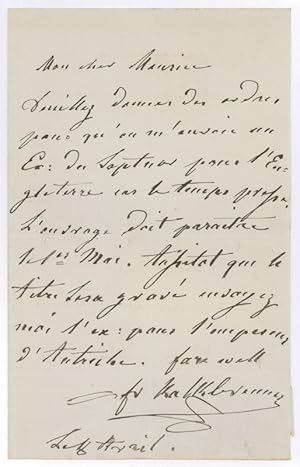 Mon cher Maurice
Veuillez donner des ordres
pour qu'on m'envoie un
Ex: du Septuor pour l'En-
gleterre car le temps presse.
L'ouvrage doit paraitre
le 1er Mai. Aussitot que le
titre sera gravé envoyez
moi l'ex: pour l'empereur
d'Autriche. fare well
fr Kalkbrenner
Le Avril.